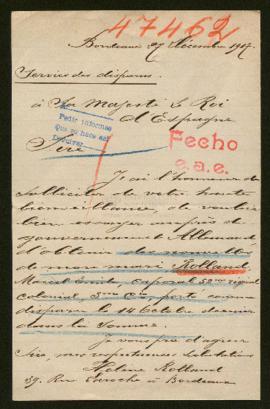 47462
Bordeaux 27 Décembre 1917
Service des disparus.
à Sa Majesté le Roi
d'Espagne
Pedir informes
Fecho
e.a.e.
Sire
J'ai l'honneur de
solliciter de votre haute
bienveillance, de vouloir
bien essayer auprès du
gouvernement Allemand
d'obtenir des nouvelles
de mon mari Rolland
Marcel Emile, caporal
colonial, porté comme
disparu le 14 Octobre dernier
dans la Somme.
Je vous prie d'agréer
Sire, mes respectueuses salutations
Rolland
39. Rue à Bordeaux